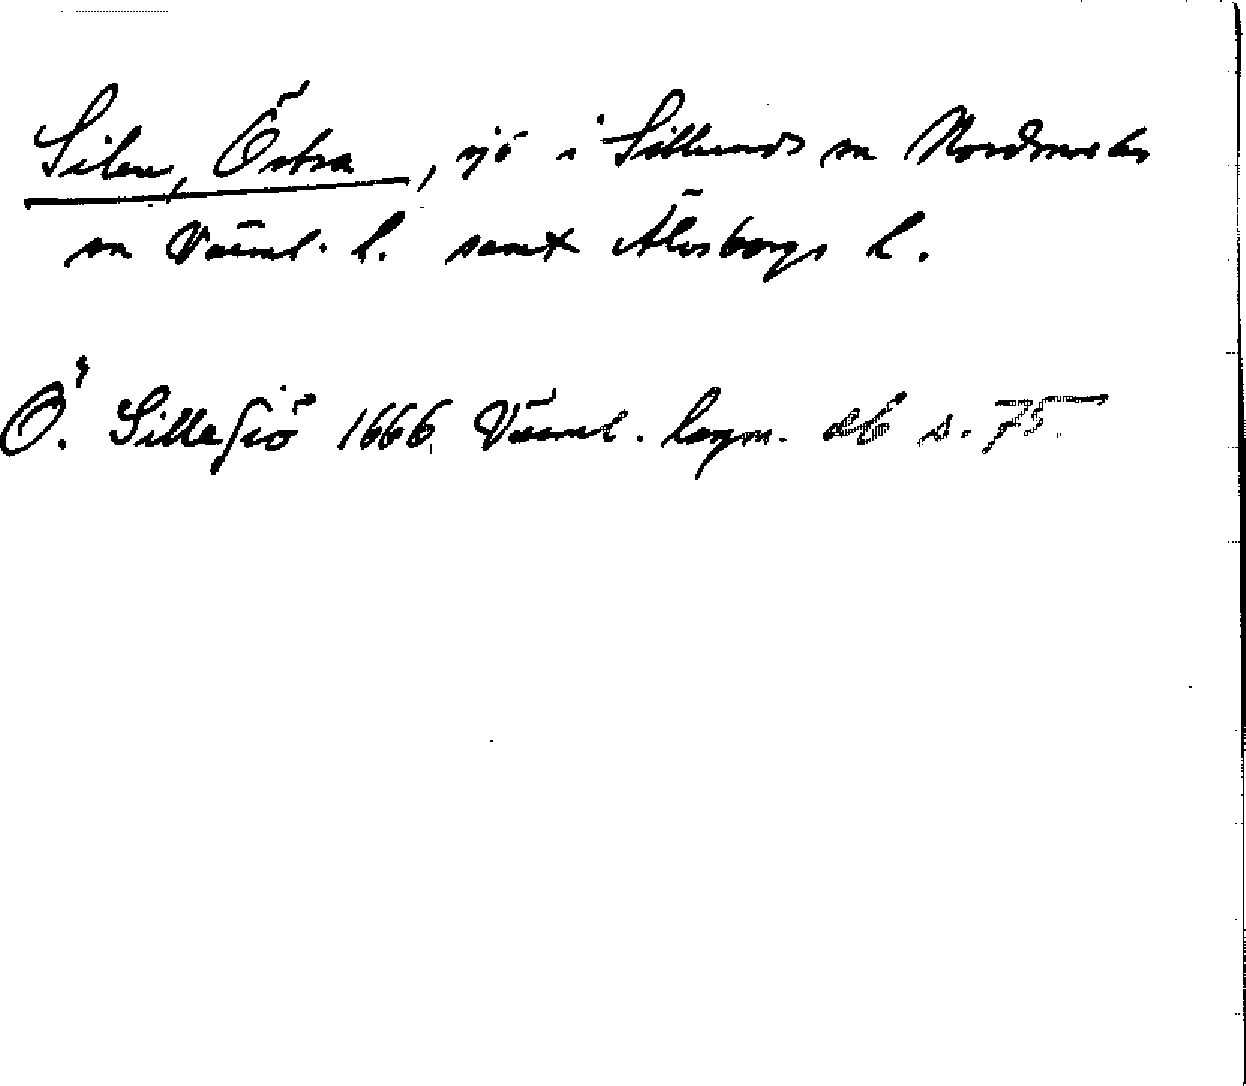 Silen, Östra, sjö i Silleruds sn Nordmarks
sn Värml. l. samt Älvsborgs l.
Ö. Sillesiö 1666 Värml. lagm. db s. 75